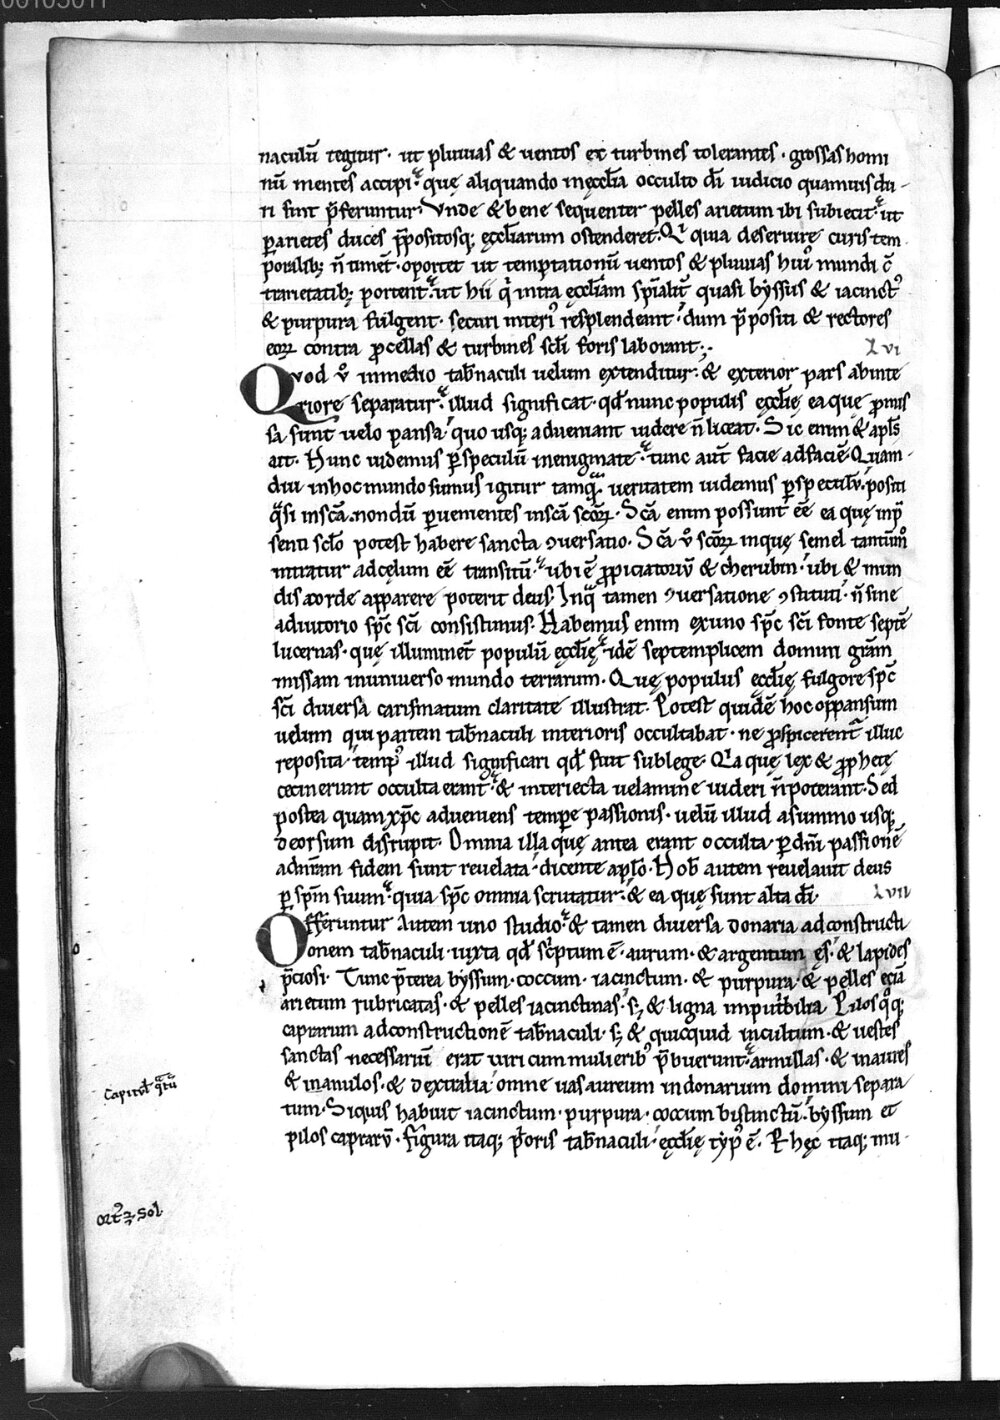 naculū tegitur · ut pluuias & uentos et turbines tolerantes · grossas homi
nū mentes accipi · quę aliquando in ęccłia occulto dī iudicio quamuis du-
ri sint p̄feruntur · Vnde & bene sequenter pelles arietum ibi subiecit · ut
ꝑ arietes duces p̄positosq; ęccłiarum ostenderet · Qi quia deseruire curis tem
poralib; n̄ timēt · oportet ut temptationū uentos & pluuias huiꝰ mundi c̄
trarietatib; portent · ut hii q̇ intra ęccłiam sp̄ialit̄ quasi byssus & iacinctꝰ
& purpura fulgent · securi interiꝰ resplendeant · dum p̄positi & rectores
eoꝝ contra ꝓcellas & turbines scłi foris laborant ;· LVI
Qvod v̊ in medio tab̄naculi uelum extenditur · & exterior pars ab inte
riore separatur · illud significat · qđ nunc populis ęccłię ea quę ꝓmis
sa sunt uelo pansa quo usq; adueniant uidere n̄ liceat · Sic enim & apłs
ait · Nunc uidemus ꝑ speculū in enigmate · tunc aut̄ facie ad faciē · Quam-
diu in hoc mundo sumus igitur tamq̄ ueritatem uidemus ꝑ speculū · positi
q̄si in scā · nondū ꝑuenientes in scā scoꝝ · Scā enim possunt eē ea quę in p̄
senti scło potest habere sancta ꝯuersatio · Scā v̊ scoꝝ in quę semel tantūm̊
intratur ad cęlum eē transitū · ubi ē ꝓpiciatoriū & cherubin · ubi & mun
dis corde apparere poterit deus · In q̄ tamen ꝯuersatione ꝯstituti · n̄ sine
adiutorio sp̄c sc̄i consistimus · Habemus enim ex uno sp̄c sc̄i fonte septē
lucernas · quę illuminēt populū ęccłię · idē septemplicem domini grām
missam in uniuerso mundo terrarum · Quę populus ęccłię fulgore sp̄c
sc̄i diuersa carismatum claritate illustrat · Potest quidē hoc oppansum
uelum qui partem tab̄naculi interioris occultabat · ne ꝓspicerent̄ illuc
reposita · tempꝰ illud significari qđ fuit sub lege · Q̄a quę lex & ꝓphetę
cecinerunt occulta erant · & interiecta uelamine uideri n̄ poterant · Sed
postea quam xp̄c adueniens tempe passionis · uelū illud a summo usq;
deorsum disrupit · Omnia illa quę antea erant occulta ꝑ dn̄i passionē
ad nr̄am fidem sunt reuelata · dicente apło · Nob̄ autem reuelauit deus
ꝑ sp̄m suum · quia sp̄c omnia scrutatur · & ea quę sunt alta dī · LVII
Offeruntur autem uno studio · & tamen diuersa donaria ad constructi
onem tab̄naculi · iuxta qđ sc̄ptum ē · aurum · & argentum ęs · & lapides
p̄ciosi · Tunc p̄terea byssum · coccum · iacinctum · & purpura · & pelles eciā
arietum rubricatas · & pelles iacinctinas · s; & ligna imput̄bilia Pilos q̊q;
caprarum ad constructionē tab̄naculi · s; & quicquid in cultum · & uestes
sanctas necessariū erat uiri cum mulieribꝰ p̄buerunt · armillas · & inaures
& anulos · & dextralia · omne uas aureum in donarium domini separa
tum · Siquis habuit iacinctum · purpura · coccum bistinctū · byssum et
pilos caprarū · figura itaq; p̄oris tab̄naculi · ęccłię typꝰ ē · & hęc itaq; mu-
Capitul̄ q̄rtū
Ortꝰ ⁊ Sol